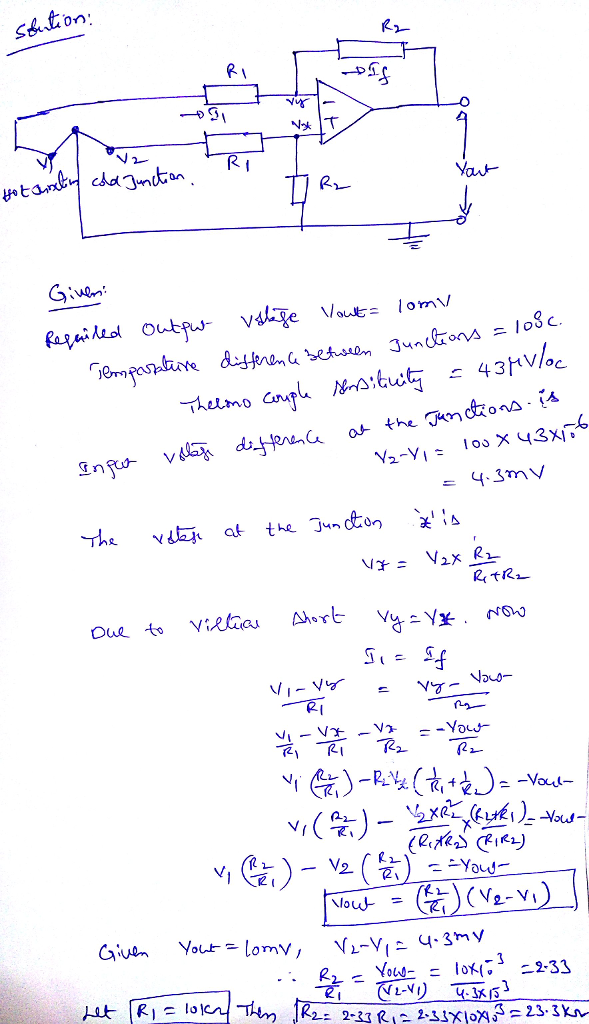 Solution:
R2
→ If
R1
→ I1
Vy
-
Vx
+
R1
V1
V2
Hot Junction
cold Junction.
R2
Vout
Given:
Required Output Voltage Vout = 10mV
Temperature difference between Junctions = 100°C.
Thermo couple sensitivity = 43μV/°C
Input voltage difference at the Junctions. is
V2-V1 = 100 X 43X10⁻⁶
= 4.3mV
The voltage at the Junction 'x' is
Vx = V2 x R2/(R1+R2)
Due to Virtual short Vy = Vx. Now
I1 = If
(V1-Vy)/R1 = (Vy-Vout)/R2
V1/R1 - Vx/R1 - Vx/R2 = -Vout/R2
V1 (R2/R1) - R2Vx (1/R1 + 1/R2) = -Vout
V1 (R2/R1) - V2xR2²/(R1+R2) x (R2+R1)/(R1R2) = -Vout
V1 (R2/R1) - V2 (R2/R1) = -Vout
Vout = (R2/R1) (V2-V1)
Given Vout = 10mV, V2-V1 = 4.3mV
∴ R2/R1 = Vout/(V2-V1) = 10x10⁻³/4.3x10⁻³ = 2.33
Let R1 = 10kΩ Then R2 = 2.33 R1 = 2.33X10X10³ = 23.3kΩ